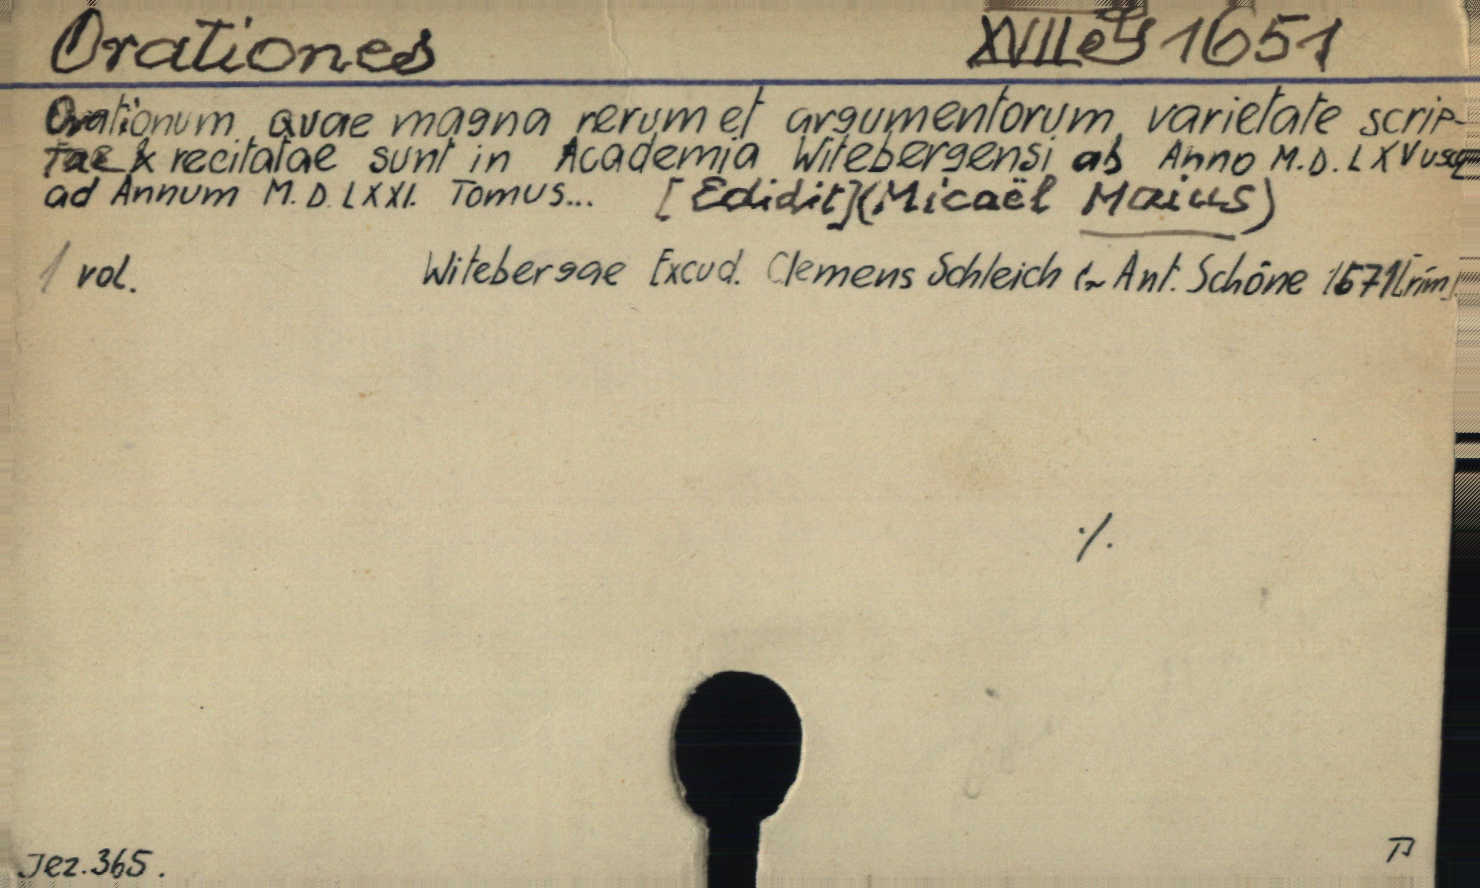 Orationes XVII e 1651
Orationum, quae magna rerum et argumentorum varietate scrip-
tae & recitatae sunt in Academia Witebergensi ab Anno M.D.LXV usq
ad Annum M.D.LXXI. Tomus... [Edidit](Micaël Maius)
1 vol. Witebergae Excud. Clemens Schleich & Ant. Schöne 1571[rím].
./.
Jez.365.